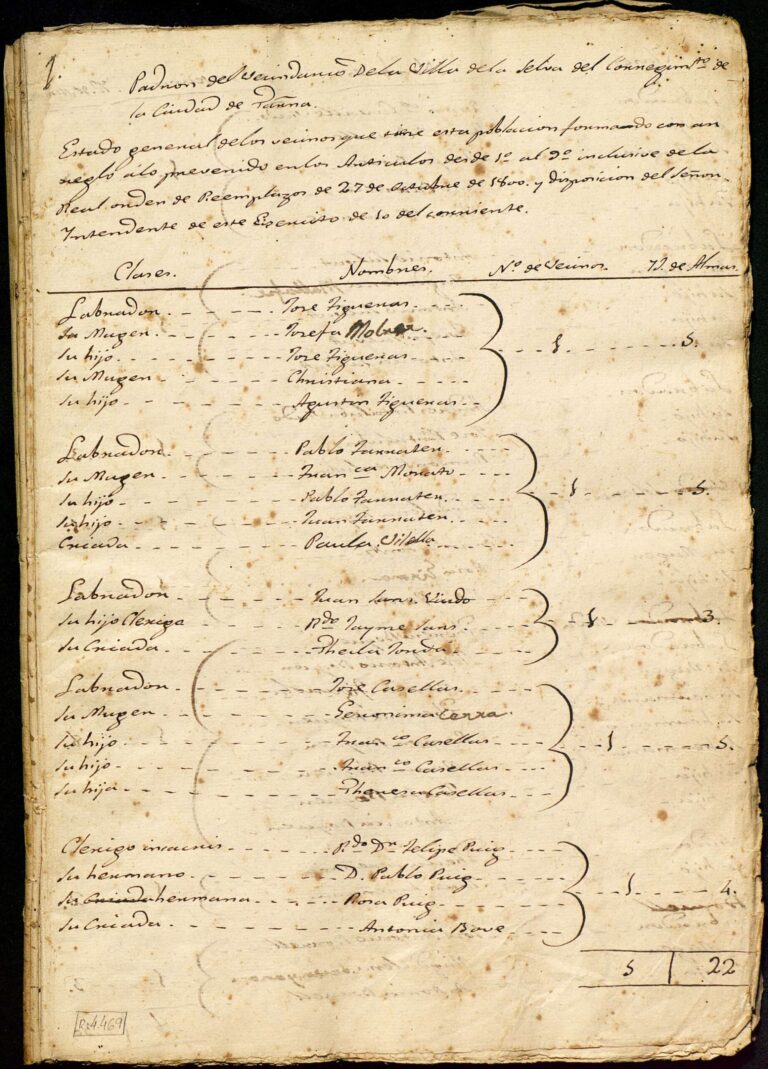 1.
Padron del Vecindario De la Villa de la Selva del Corregimto de
la Ciudad de Tarrna.
Estado general de los vecinos que tiene esta poblacion formando con ar
reglo á lo prevenido en los Articulos desde 1o al 9o inclusive de la
Real orden de Reemplazos de 27 de Octubre de 1800. y disposicion del Señor
Intendente de este Exercito de 10 del corriente.
Clases. Nombres. No de Vecinos. Yd. de Almas.
Labrador Jose Figueras
Su Muger Josefa Molner
Su hijo Jose Figueras 1 5.
Su Muger Christiana
Su hijo Agustin Figueras
Labrador Pablo Farrater
Su Muger Franca Morato
Su hijo Pablo Farrater 1 5.
Su hijo Juan Farrater
Criada Paula Vilella
Labrador Juan Sans Viudo
Su hijo Clerigo Rdo Jayme Sans 1 3.
Su Criada Thecla
Labrador Jose Casellas
Su Muger Geronima Serra
Su hijo Franco Casellas 1 5.
Su hijo Casellas
Su hija Theresa Casellas
Clerigo insacris Rdo Dn Felipe Puig
Su hermano D. Pablo Puig
Su Criada hermana Rosa Puig 1 4.
Su Criada Antonia Bove
5 22
R.4.469